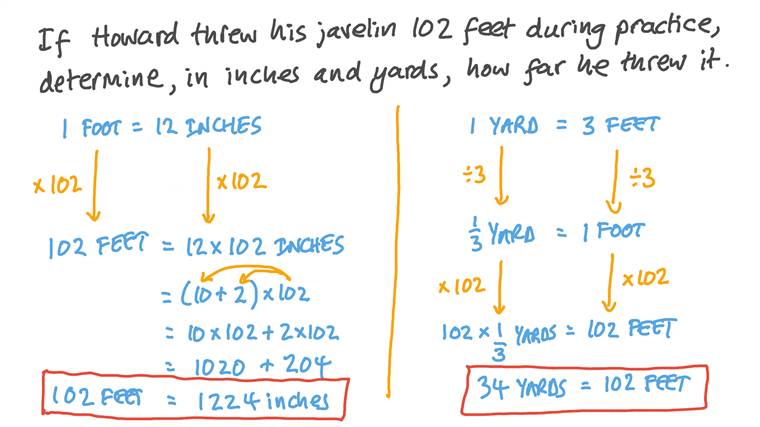 If Howard threw his javelin 102 feet during practice,
determine, in inches and yards, how far he threw it.
1 FOOT = 12 INCHES
×102 ×102
102 FEET = 12 × 102 INCHES
= (10 + 2) × 102
= 10 × 102 + 2 × 102
= 1020 + 204
102 FEET = 1224 inches
1 YARD = 3 FEET
÷3 ÷3
1/3 YARD = 1 FOOT
×102 ×102
102 × 1/3 YARDS = 102 FEET
34 YARDS = 102 FEET